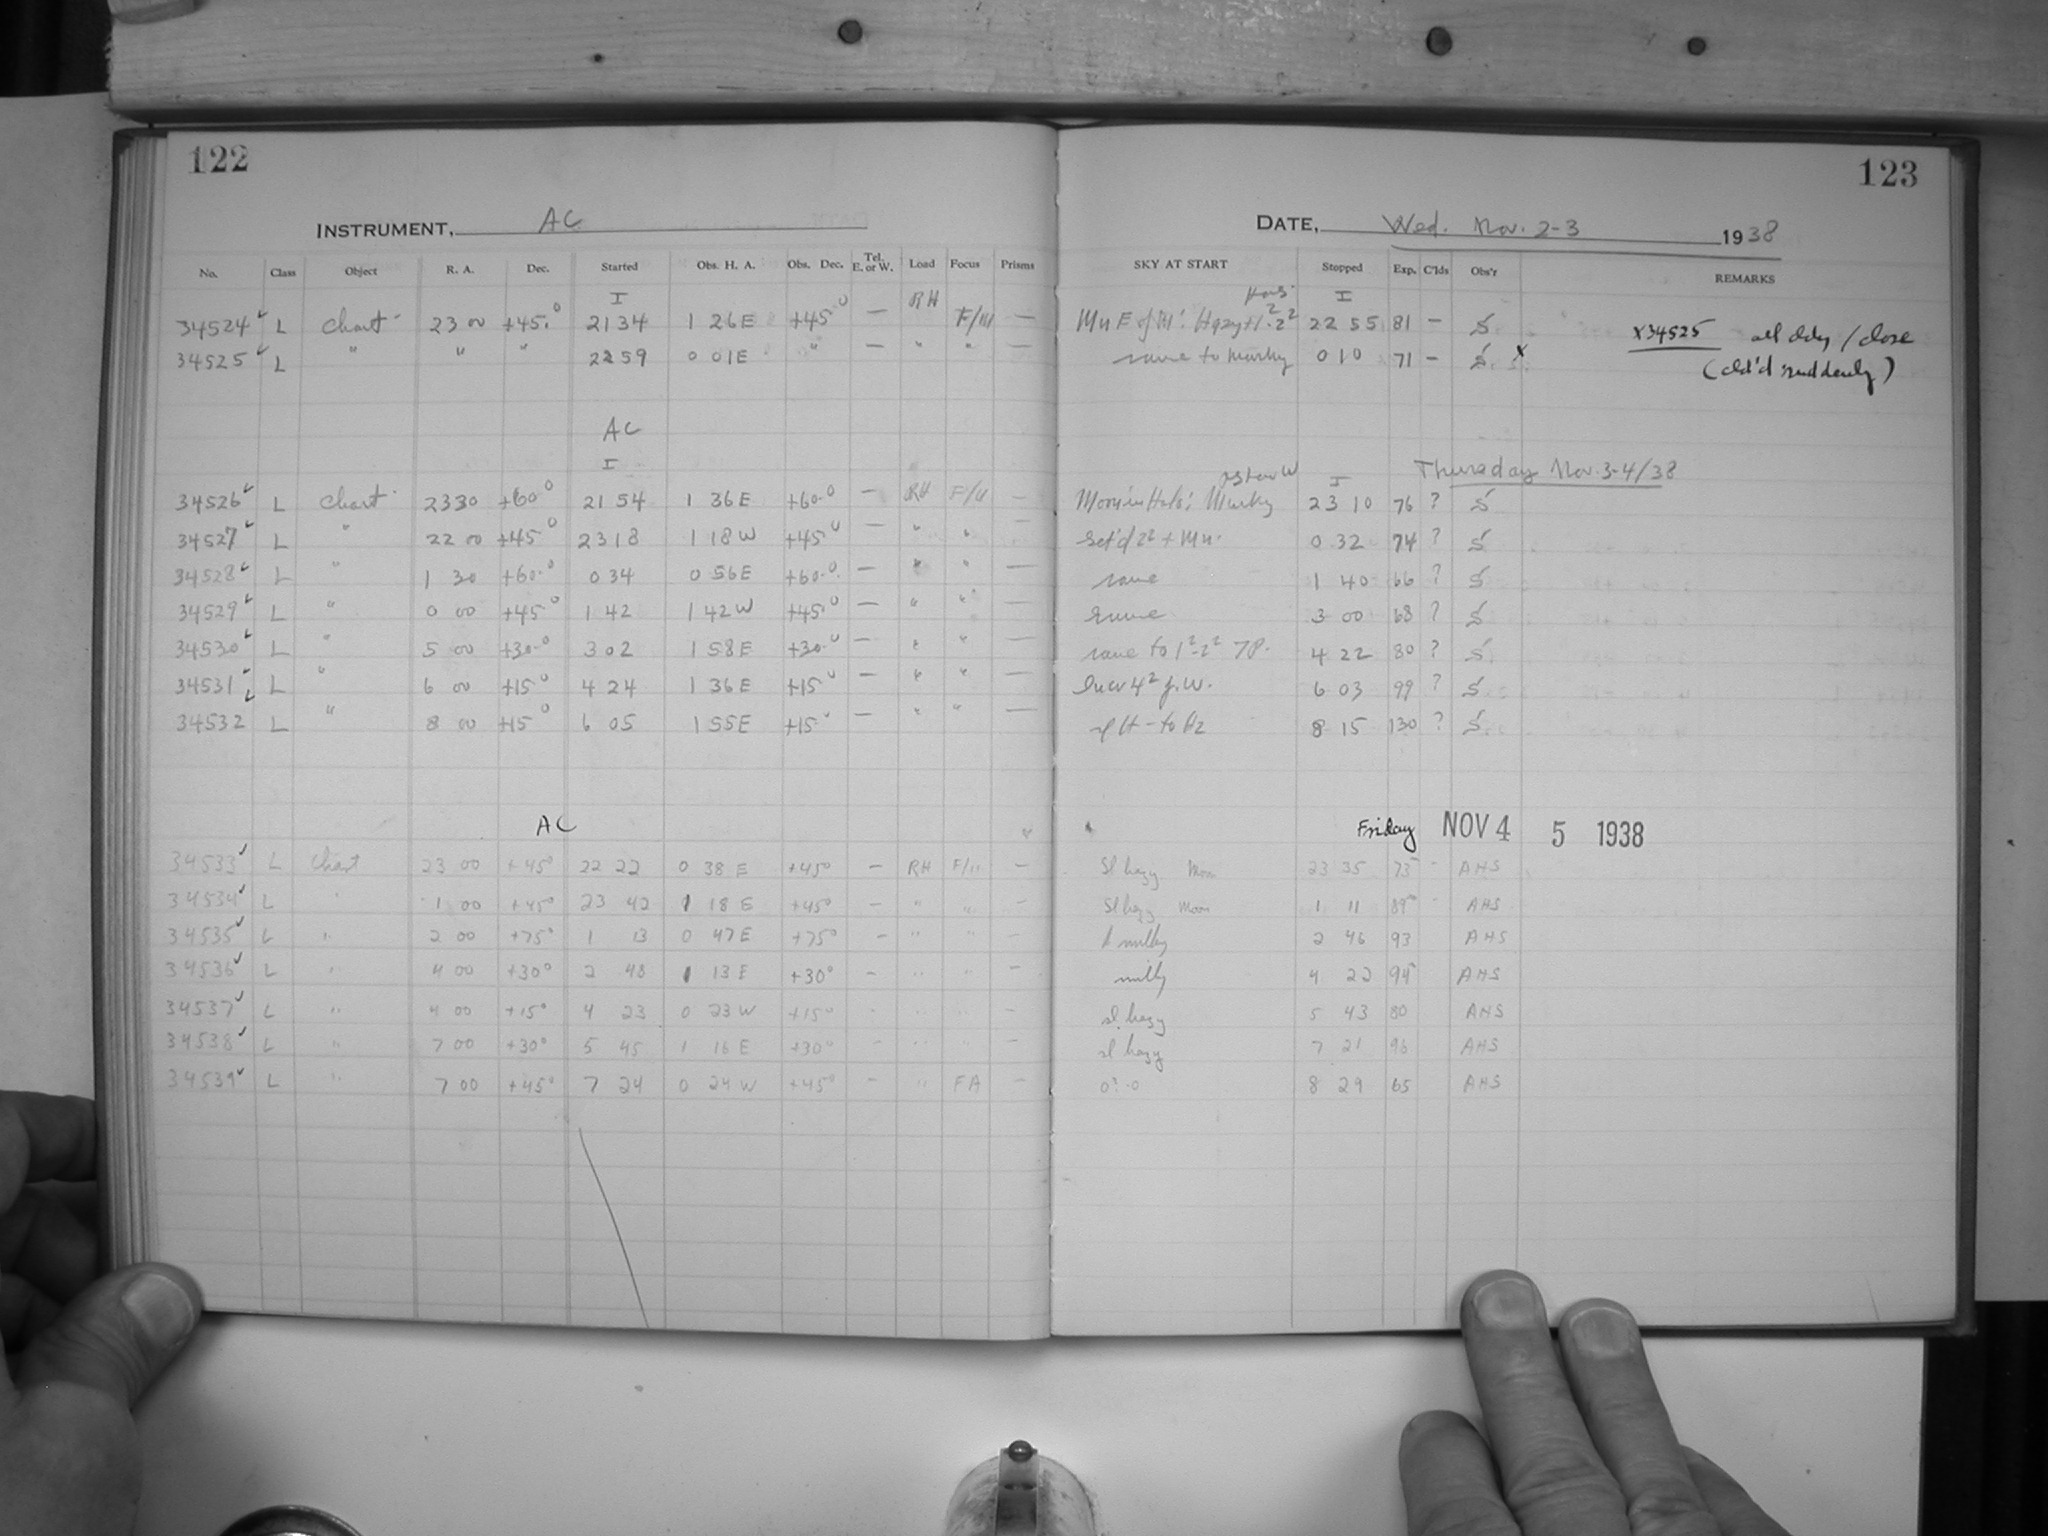 122
INSTRUMENT, AC
No. Class Object R. A. Dec. Started Obs. H. A. Obs. Dec. Tel. E. or W. Load Focus Prisms
I RH
34524 L Chart 23 00 +45.0 2134 1 26E +45.0 — F/11 —
34525 L " " " 2259 0 01E " — " " —
AC
I
34526 L Chart 2330 +60.0 2154 1 36E +60.0 — RH F/11 —
34527 L " 22 00 +45.0 2318 1 18W +45.0 — " " —
34528 L " 1 30 +60.0 0 34 0 56E +60.0 — " " —
34529 L " 0 00 +45.0 1 42 1 42W +45.0 — " " —
34530 L " 5 00 +30.0 3 02 1 58E +30.0 — " " —
34531 L " 6 00 +15.0 4 24 1 36E +15.0 — " " —
34532 L " 8 00 +15.0 6 05 1 55E +15.0 — " " —
AC
34533 L Chart 23 00 +45° 22 22 0 38 E +45° — RH F/11 —
34534 L " 1 00 +45° 23 42 1 18 E +45° — " " —
34535 L " 2 00 +75° 1 13 0 47E +75° — " " —
34536 L " 4 00 +30° 2 48 1 13 E +30° — " " —
34537 L " 4 00 +15° 4 23 0 23 W +15° — " " —
34538 L " 7 00 +30° 5 45 1 16 E +30° — " " —
34539 L " 7 00 +45° 7 24 0 24 W +45° — " FA —
123
DATE, Wed. Nov. 2-3 1938
SKY AT START Stopped Exp. C'lds Obs'r REMARKS
I
Mn E of M: Hazy 22 55 81 — S x34525 all / close
same to Murky 0 10 71 — S. x (cld'd suddenly)
Thursday Nov. 3-4/38
W I
Moon in Halo: Murky 23 10 76 ? S
2² + Mn. 0 32 74 ? S
same 1 40 66 ? S
same 3 00 68 ? S
same to 1²-2² 4 22 80 ? S
4² f. W. 6 03 99 ? S
8 15 130 ? S
Friday NOV 4 5 1938
Sl hazy Moon 23 35 73 - AHS
Sl hazy Moon 1 11 89 - AHS
milky 2 46 93 AHS
milky 4 22 94 AHS
sl. hazy 5 43 80 AHS
sl hazy 7 21 96 AHS
0?.0 8 29 65 AHS